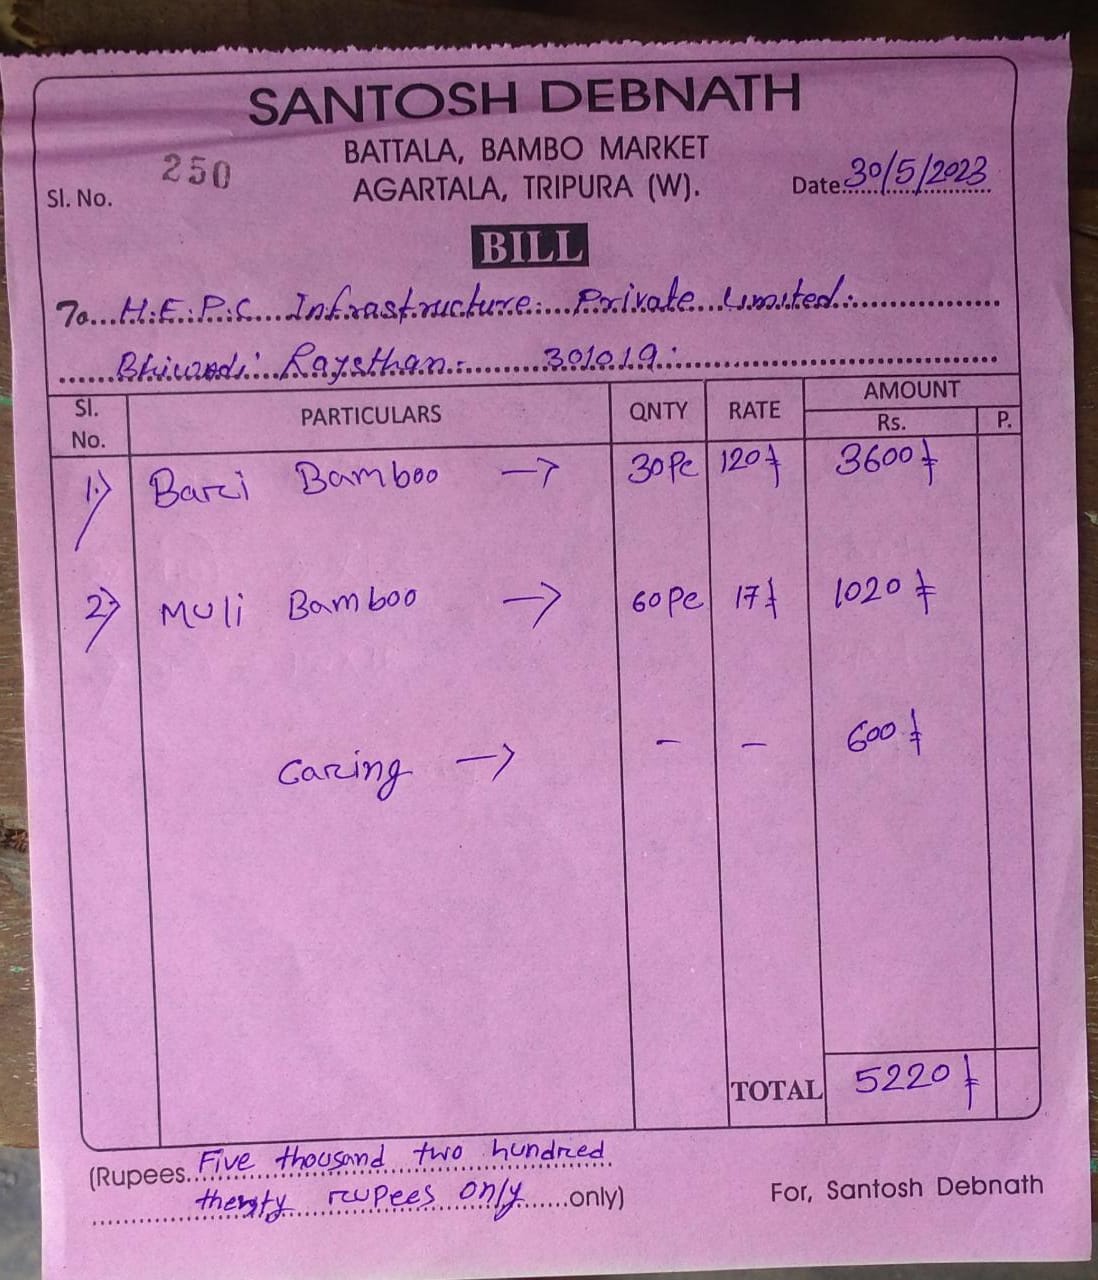 SANTOSH DEBNATH
BATTALA, BAMBO MARKET
AGARTALA, TRIPURA (W).
Sl. No. 250
Date 30/5/2023
BILL
To H.E.P.C. Infrastructure. Private Limited.
Bhiwadi Raysthan. 301019.
Sl. No. PARTICULARS QNTY RATE AMOUNT Rs. P.
1) Bari Bamboo → 30Pc 120/- 3600/-
2) Muli Bamboo → 60Pc 17/- 1020/-
Caring → - - 600/-
TOTAL 5220/-
(Rupees Five thousand two hundred
rupees only only)
For, Santosh Debnath